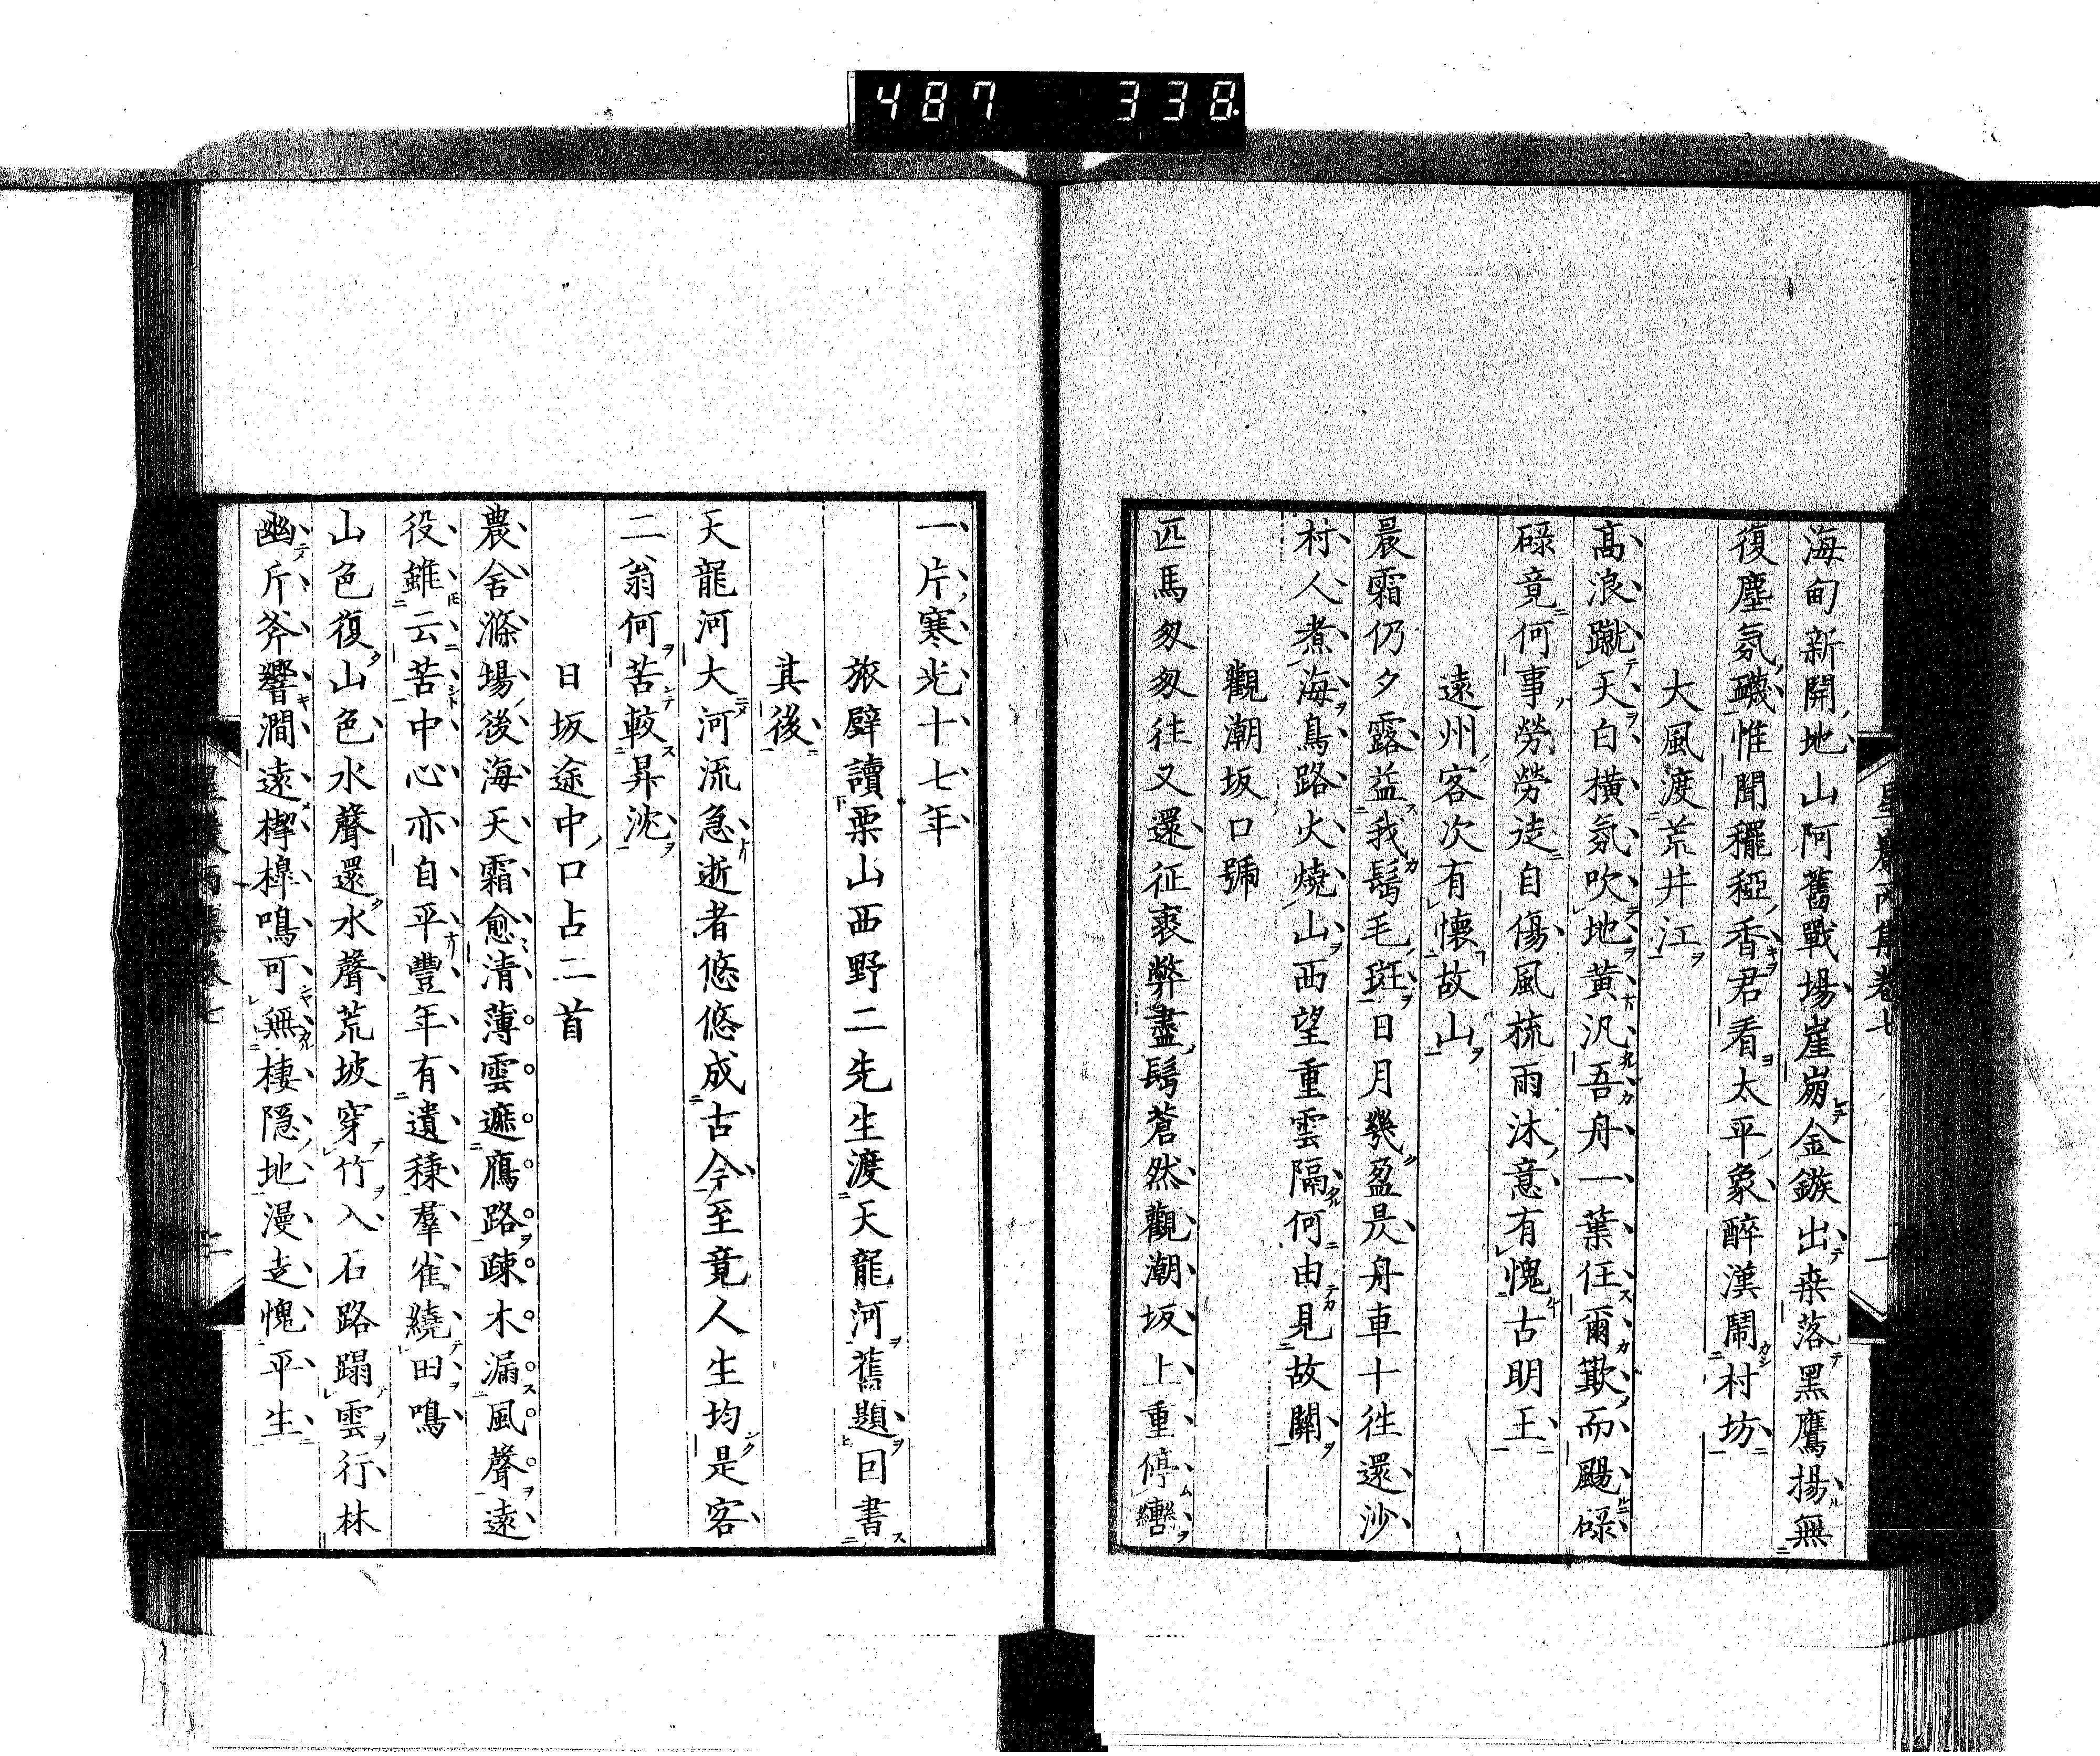 487 338
海甸新開地山阿舊戰場崖崩金鏃出桒落黑鷹揚無
復塵氛磯惟聞䆉稏香君看太平象醉漢鬧村坊
大風渡荒井江
高浪蹴天白橫氛吹地黃汎吾舟一葉任爾歎而颺碌
碌竟何事勞勞徒自傷風梳雨沐意有愧古明王
遠州客次有懷故山
晨霜仍夕露益我鬢毛斑日月幾盈昃舟車十往還沙
村人煮海鳥路火燒山西望重雲隔何由見故關
觀潮坂口號
匹馬匆匆往又還征裘弊盡鬢蒼然觀潮坂上重停轡
一片寒光十七年
旅壁讀栗山西野二先生渡天龍河舊題囙書
其後
天龍河大河流急逝者悠悠成古今至竟人生均是客
二翁何苦較昇沈
日坂途中口占二首
農舍滌場後海天霜愈清薄雲遮鴈路疎木漏風聲遠
役雖云苦中心亦自平豐年有遺秉羣雀繞田鳴
山色復山色水聲還水聲荒坡穿竹入石路蹋雲行林
幽斤斧響澗遠桔槹鳴可無棲隱地漫走愧平生